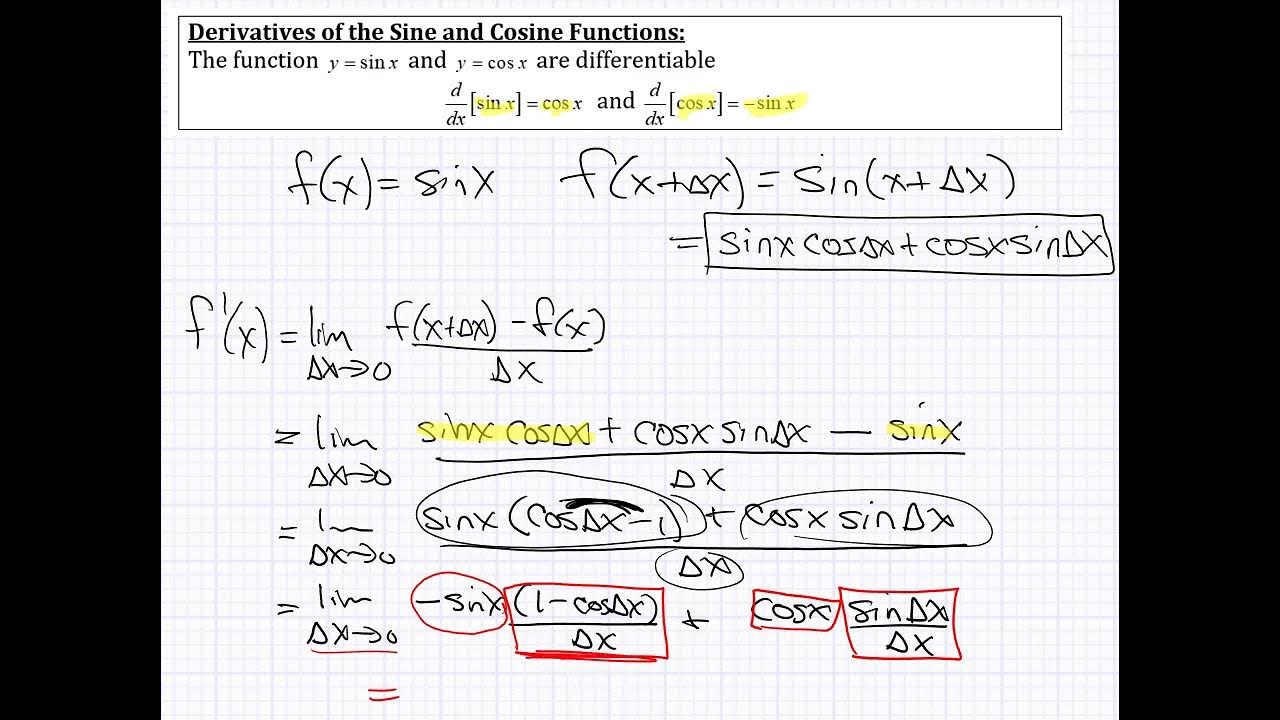 Derivatives of the Sine and Cosine Functions:
The function y = sin x and y = cos x are differentiable
d/dx [sin x] = cos x and d/dx [cos x] = −sin x
f(x) = sinx f(x+Δx) = sin(x+Δx)
= sinx cosΔx + cosx sinΔx
f'(x) = lim Δx→0 (f(x+Δx) − f(x))/Δx
= lim Δx→0 (sinx cosΔx + cosx sinΔx − sinx)/Δx
= lim Δx→0 (sinx (cosΔx − 1) + cosx sinΔx)/Δx
= lim Δx→0 −sinx (1−cosΔx)/Δx + cosx sinΔx/Δx
=